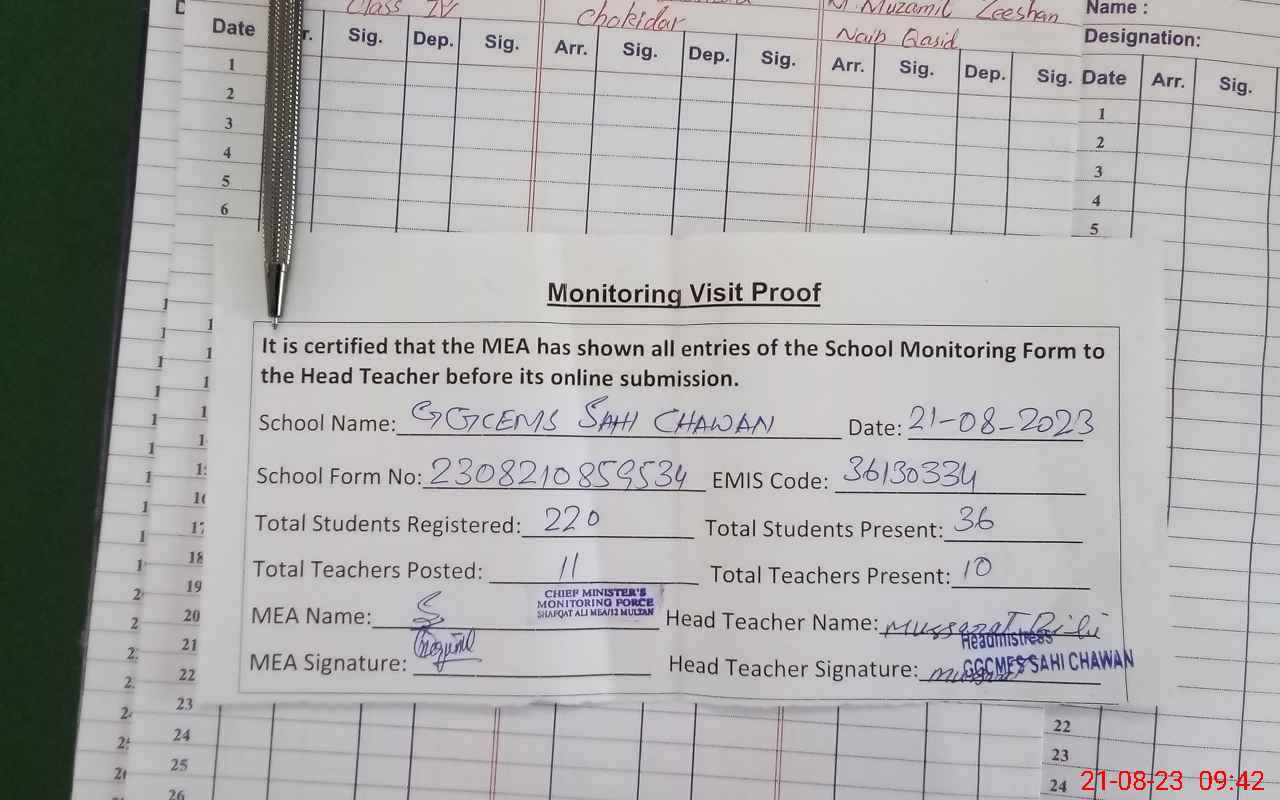 Class IV
Chokidar
M. Muzamil Zeeshan
Naib Qasid
Name :
Designation:
Date r. Sig. Dep. Sig. Arr. Sig. Dep. Sig. Arr. Sig. Dep. Sig. Date Arr. Sig.
1
2
3
4
5
6
1
2
3
4
5
Monitoring Visit Proof
It is certified that the MEA has shown all entries of the School Monitoring Form to
the Head Teacher before its online submission.
School Name: GGCEMS SAHI CHAWAN Date: 21-08-2023
School Form No: 2308210859534 EMIS Code: 36130334
Total Students Registered: 220 Total Students Present: 36
Total Teachers Posted: 11 Total Teachers Present: 10
CHIEF MINISTER'S
MONITORING FORCE
SHAFQAT ALI MEA/12 MULTAN
MEA Name: Head Teacher Name: Mussarat Bibi
Headmistress
MEA Signature: Head Teacher Signature:
GGCMES SAHI CHAWAN
17
18
19
20
21
22
23
24
25
26
22
23
24
21-08-23 09:42